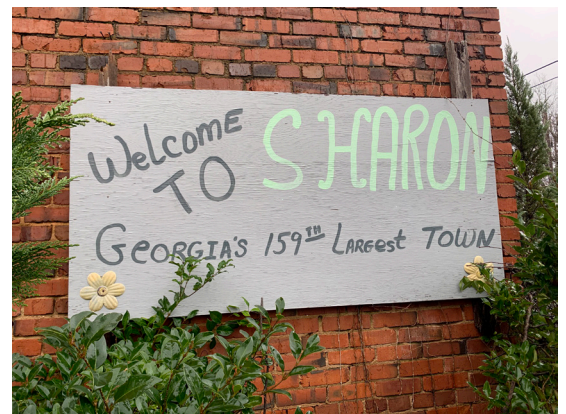 Welcome
TO SHARON
GEORGIA'S 159TH LARGEST TOWN